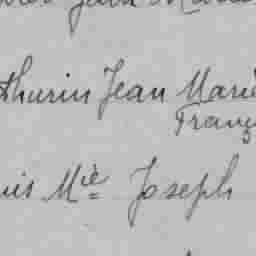 Jean Marie
thurin Jean Marie
Franç
uis Mie Joseph